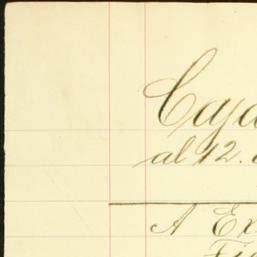 Caja
al 12.
A Ex